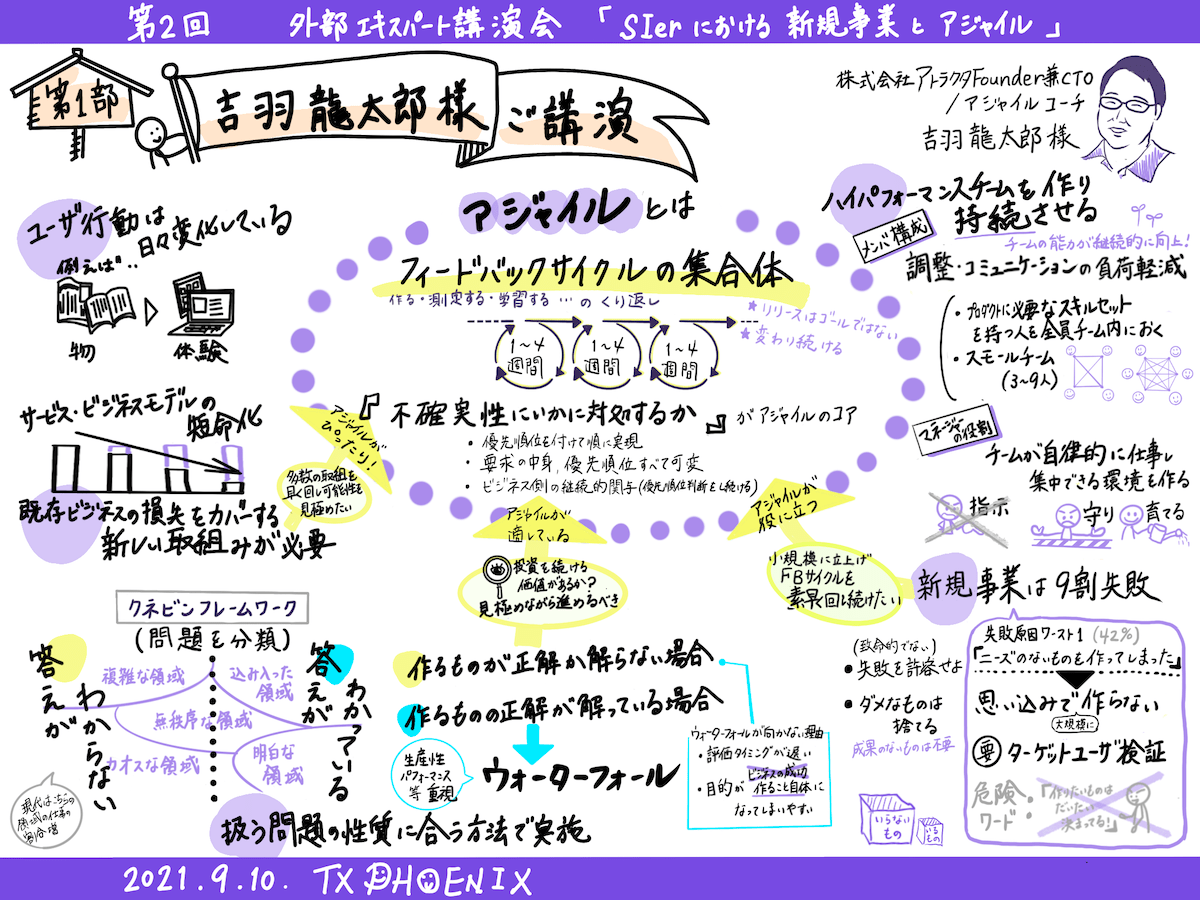 第2回 外部エキスパート講演会 「SIerにおける新規事業とアジャイル」
第1部
吉羽龍太郎様
ご講演
株式会社アトラクタFounder兼CTO
/アジャイルコーチ
吉羽龍太郎様
ユーザ行動は
日々変化している
例えば‥
物
体験
サービス・ビジネスモデルの
短命化
既存ビジネスの損失をカバーする
新しい取組みが必要
アジャイルとは
フィードバックサイクルの集合体
作る・測定する・学習する…のくり返し
★リリースはゴールではない
★変わり続ける
1〜4
週間
1〜4
週間
1〜4
週間
『不確実性にいかに対処するか』がアジャイルのコア
・優先順位を付けて順に実現
・要求の中身,優先順位すべて可変
・ビジネス側の継続的関与(優先順位判断をし続ける)
アジャイルが
ぴったり!
多数の取組を
早く回し可能性を
見極めたい
アジャイルが
適している
投資を続ける
価値があるか?
見極めながら進めるべき
アジャイルが
役に立つ
小規模に立上げ
FBサイクルを
素早く回し続けたい
ハイパフォーマンスチームを作り
持続させる
チームの能力が継続的に向上!
メンバ構成
調整・コミュニケーションの負荷軽減
・プロダクトに必要なスキルセット
を持つ人を全員チーム内におく
・スモールチーム
(3〜9人)
マネージャーの役割
チームが自律的に仕事し
集中できる環境も作る
指示
守り
育てる
新規事業は9割失敗
(致命的でない)
・失敗を許容せよ
・ダメなものは
捨てる
成果のないものは不要
いらない
もの
いる
もの
失敗原因ワースト1(42%)
「ニーズのないものを作ってしまった」
思い込みで作らない
(大規模に)
要 ターゲットユーザ検証
危険
ワード:
「作りたいものは
だいたい
決まってる!」
クネビンフレームワーク
(問題を分類)
答えが
わからない
答えが
わかっている
複雑な領域
込み入った
領域
無秩序な領域
カオスな領域
明白な
領域
現代はこちらの
領域の仕事の
割合増
作るものが正解か解らない場合
作るものの正解が解っている場合
生産性
パフォーマンス
等重視
ウォーターフォール
ウォーターフォールが向かない理由
・評価タイミングが遅い
・目的が ビジネスの成功
作ること自体に
なってしまいやすい
扱う問題の性質に合う方法で実施
2021.9.10. TX PHOENIX